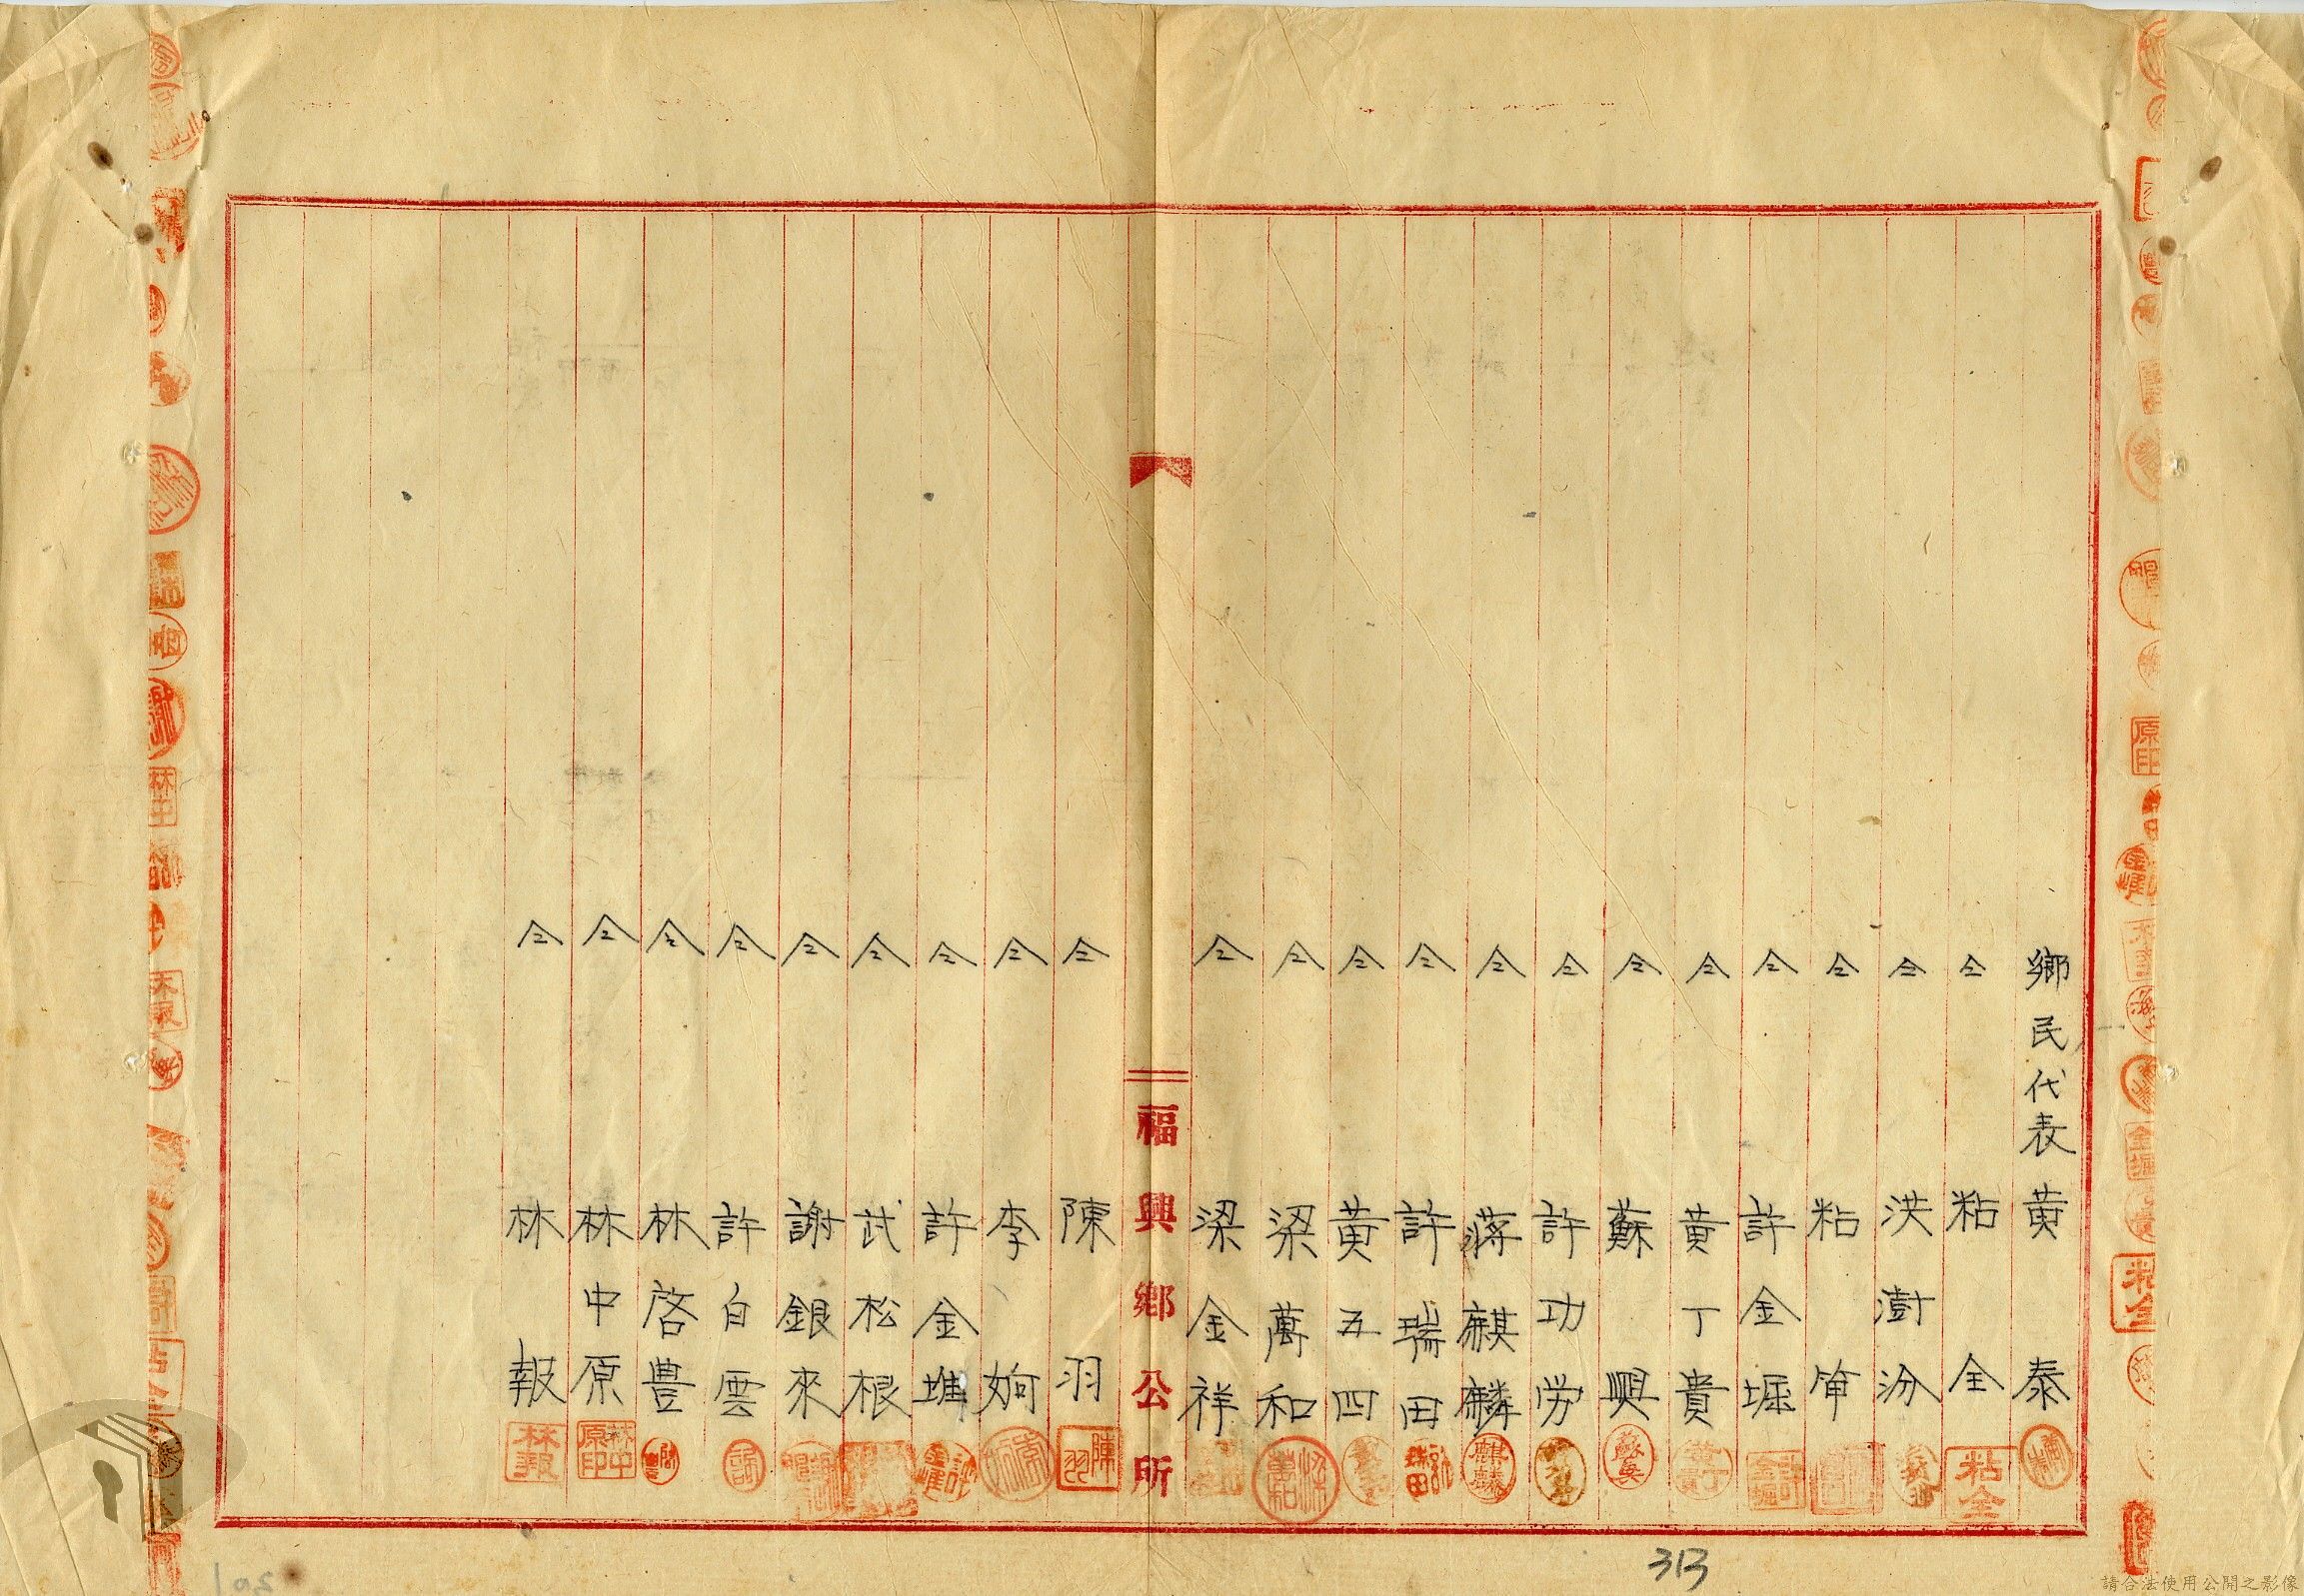 鄉民代表 黃泰
仝 粘全
仝 洪澍汾
仝 粘笚
仝 許金堀
仝 黃丁貴
仝 蘇興
仝 許功労
仝 蔣麒麟
仝 許瑞田
仝 黃五四
仝 梁萬和
仝 梁金祥
福興鄉公所
仝 陳羽
仝 李姁
仝 許金𡑞
仝 武松根
仝 謝銀來
仝 許白雲
仝 林啓豐
仝 林中原
仝 林報
粘全
陳羽
林中原印
林報
麒麟
313
請合法使用公開之影像